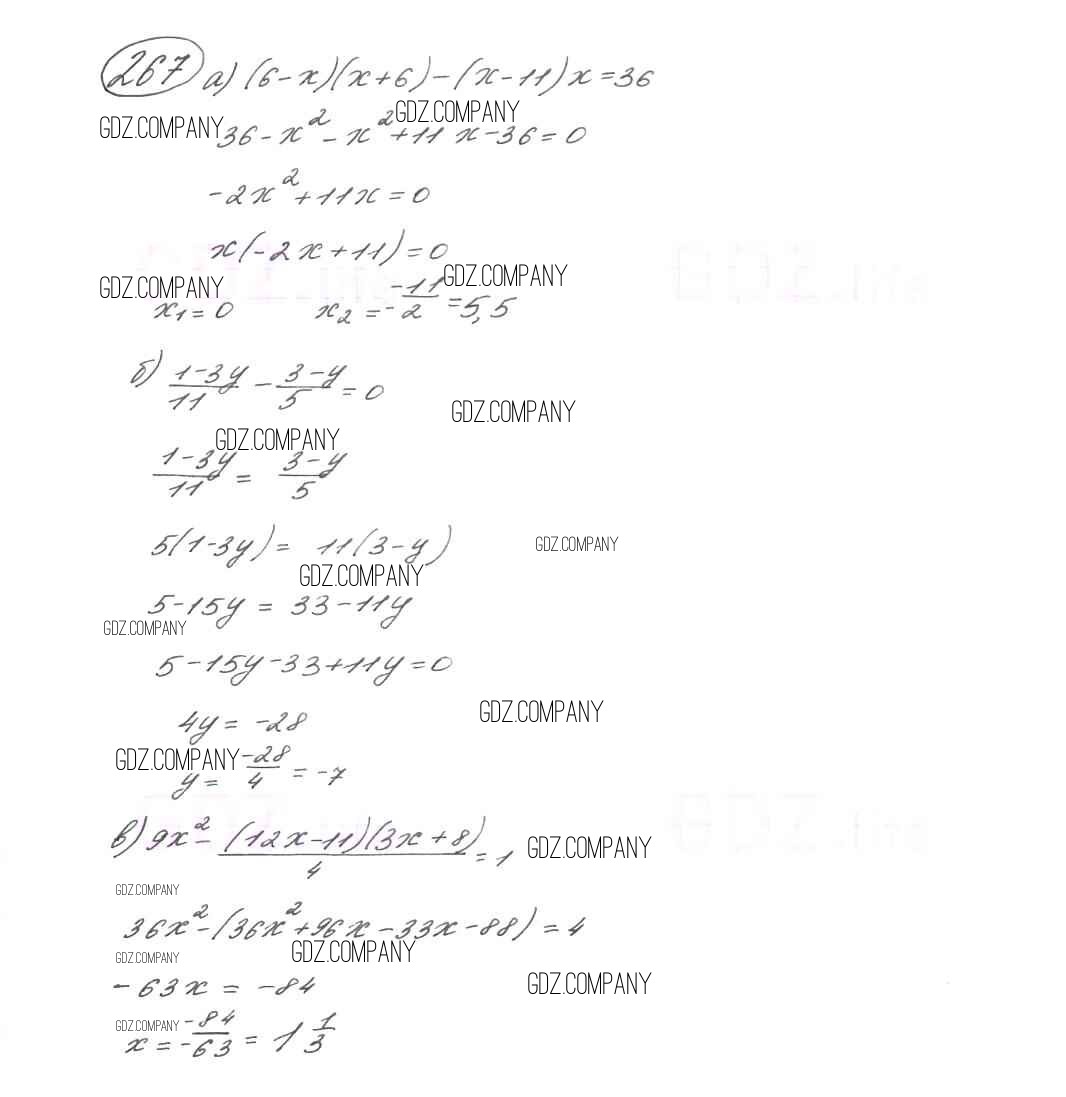 267 а) (6-x)(x+6)-(x-11)x=36
GDZ.COMPANY
GDZ.COMPANY
36-x²-x²+11x-36=0
-2x²+11x=0
x(-2x+11)=0
GDZ.COMPANY
GDZ.COMPANY
x₁=0 x₂=-11/-2=5,5
б) 1-3y/11 - 3-y/5 = 0
GDZ.COMPANY
GDZ.COMPANY
1-3y/11 = 3-y/5
5(1-3y)= 11(3-y)
GDZ.COMPANY
GDZ.COMPANY
5-15y = 33-11y
GDZ.COMPANY
5-15y-33+11y=0
4y = -28
GDZ.COMPANY
GDZ.COMPANY
y= -28/4 = -7
в) 9x² - (12x-11)(3x+8)/4 = 1
GDZ.COMPANY
GDZ.COMPANY
36x²-(36x²+96x-33x-88)=4
GDZ.COMPANY
GDZ.COMPANY
-63x = -84
GDZ.COMPANY
GDZ.COMPANY
x = -84/-63 = 1 1/3